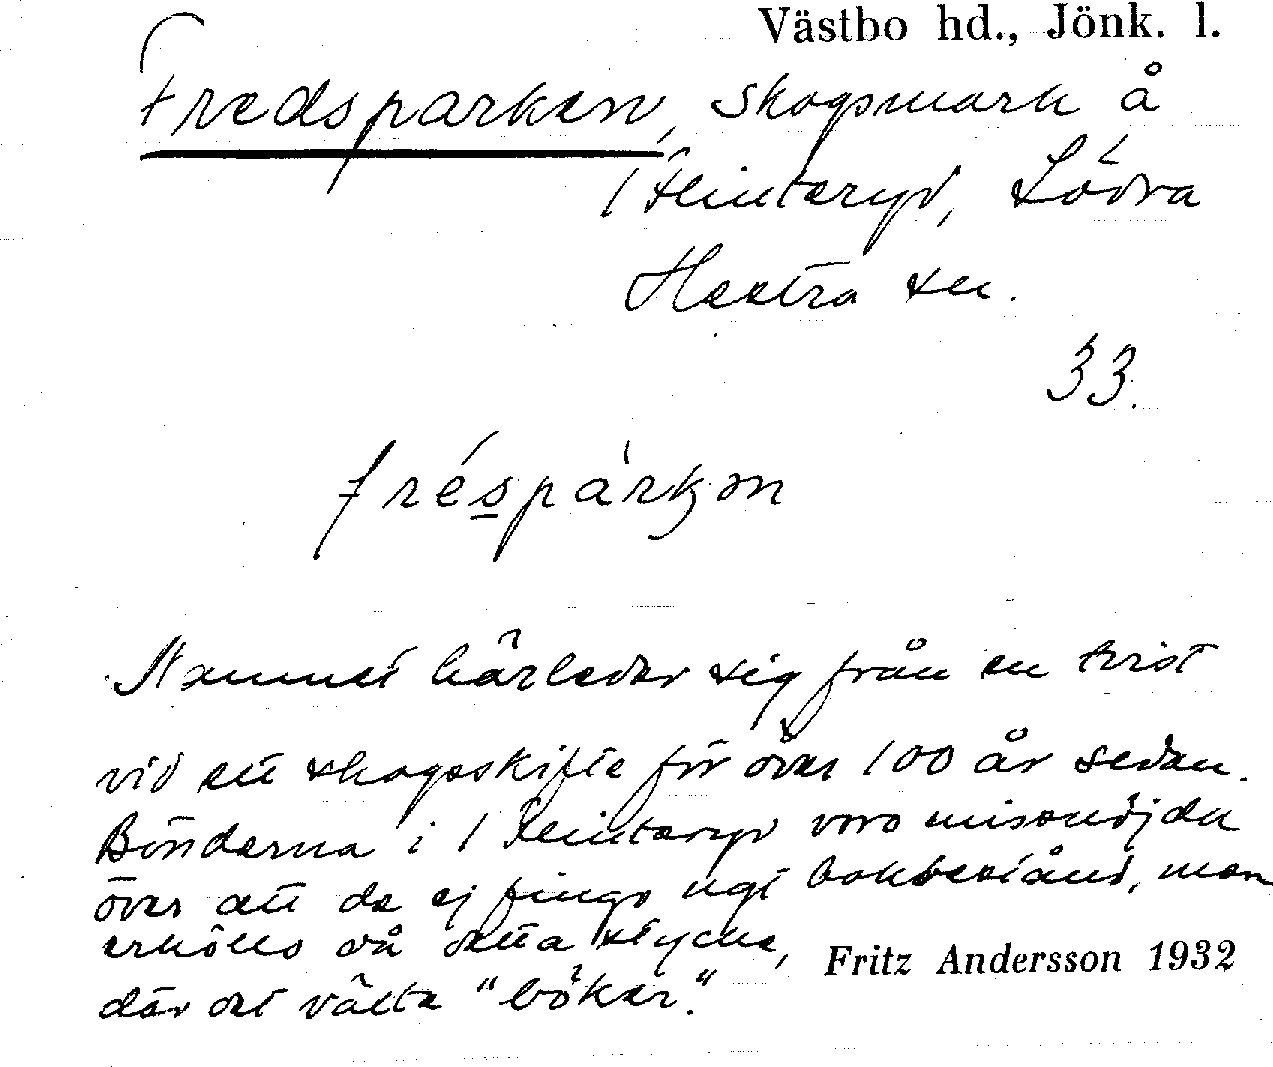 Västbo hd., Jönk. l.
Fredsparken, skogsmark å
1 Flintaryd, Södra
Hestra sn.
33.
fréspárkən
Namnet härleder sig från en tvist
vid ett skogsskifte för över 100 år sedan.
Bönderna i 1 Flintaryd voro missnöjda
över att de ej fingo ngt bokbestånd, men
erhöllo då detta stycke,
där det växte "böker."
Fritz Andersson 1932